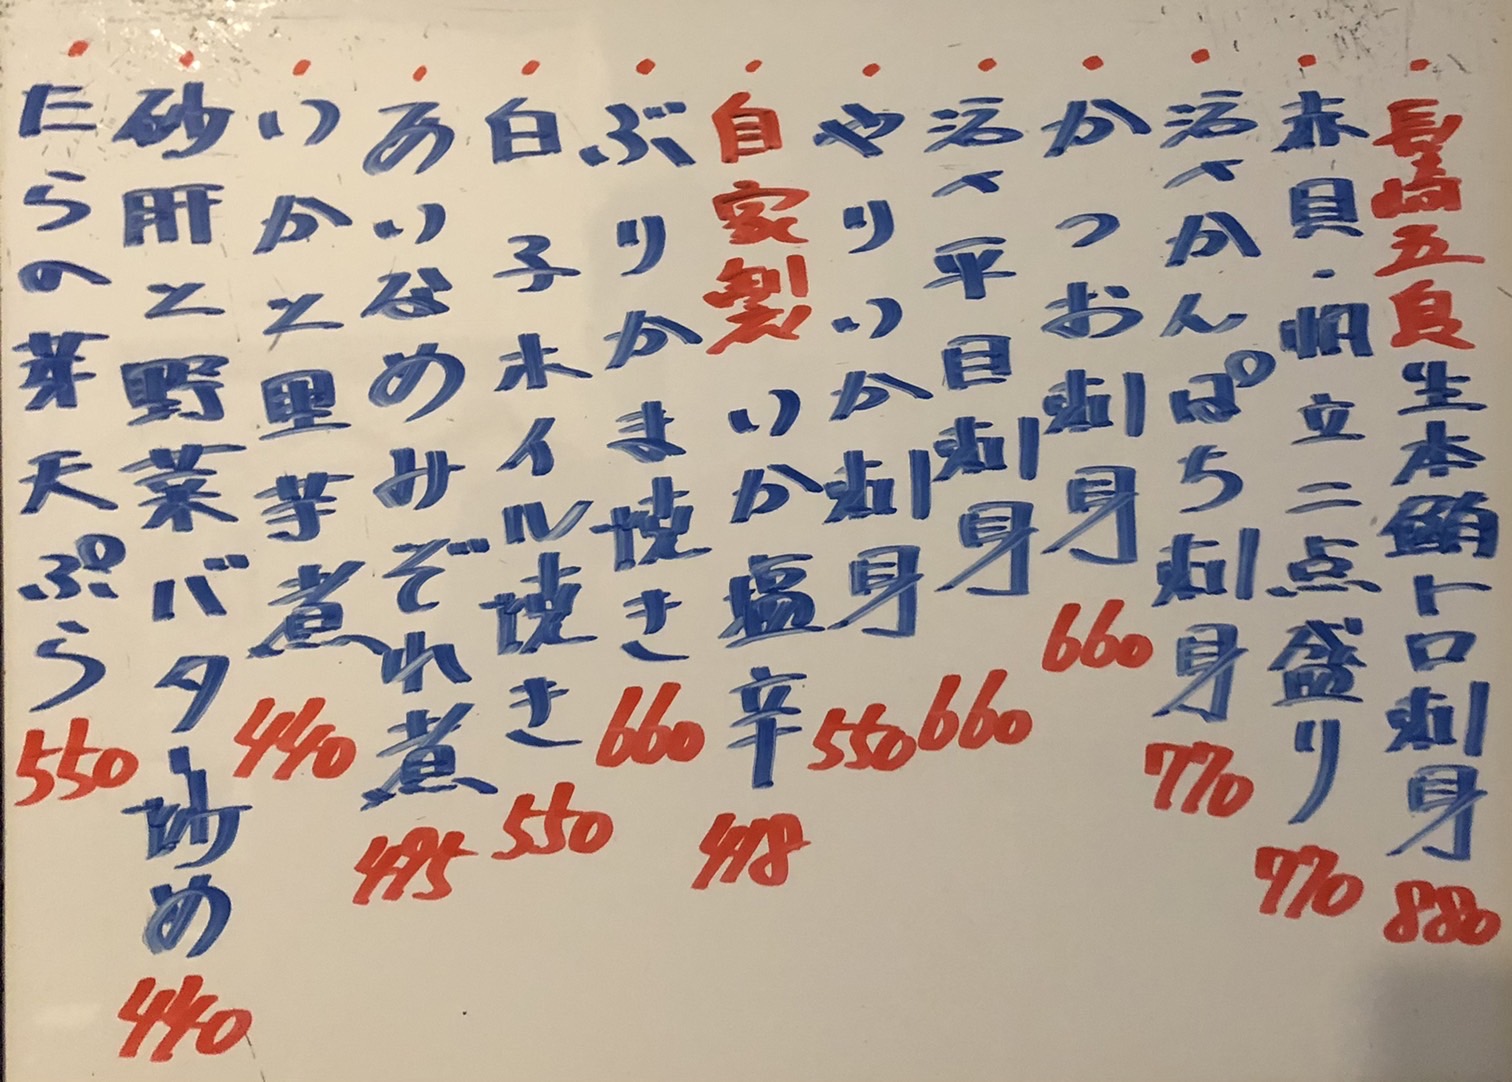 ・長崎五島生本鮪トロ刺身 880
・赤貝・帆立二点盛り 770
・活〆かんぱち刺身 770
・かつお刺身 660
・活〆平目刺身 660
・やりいか刺身 550
・自家製いか塩辛 418
・ぶりかま焼き 660
・白子ホイル焼き 550
・あいなめみぞれ煮 495
・いかと里芋煮 440
・砂肝と野菜バター炒め 440
・たらの芽天ぷら 550